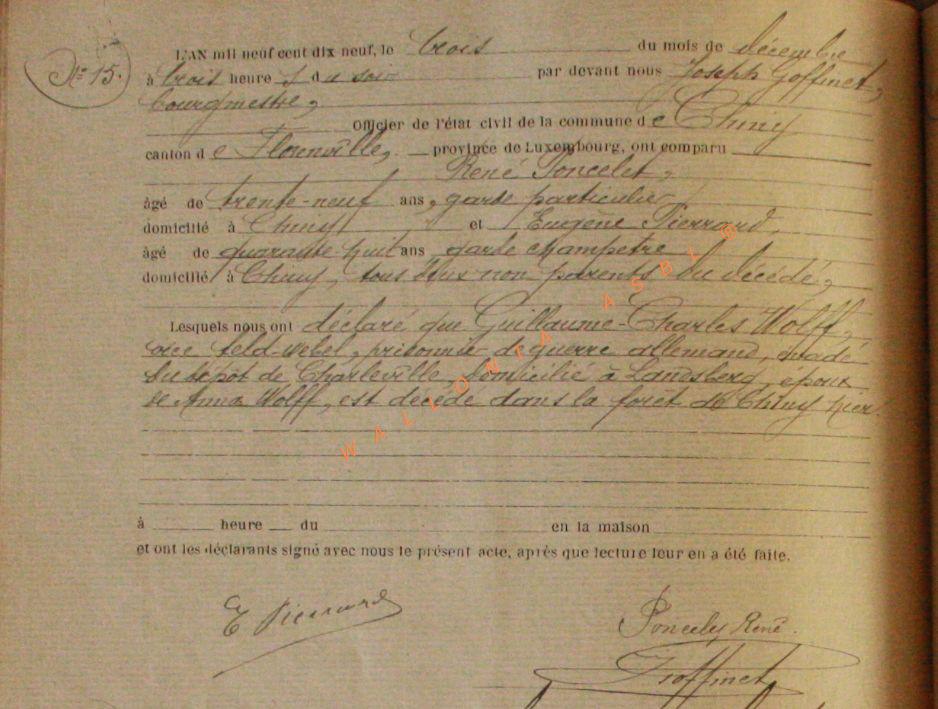 Nº 15.
L'AN mil neuf cent dix neuf, le trois du mois de décembre
à trois heures du soir par devant nous Joseph Goffinet,
bourgmestre,
Officier de l'état civil de la commune de Chiny
canton de Florenville, province de Luxembourg, ont comparu
René Poncelet,
âgé de trente-neuf ans, garde particulier
domicilié à Chiny et Eugène Pierrard,
âgé de quarante huit ans garde champetre
domicilié à Chiny, tous deux non parents du décédé,
Lesquels nous ont déclaré que Guillaume-Charles Wolff,
vice feld-webel, prisonnier de guerre allemand, évadé
du dépôt de Charleville, domicilié à Landsberg, époux
de Anna Wolff, est décédé dans la foret de Chiny hier
à heure du en la maison
et ont les déclarants signé avec nous le présent acte, après que lecture leur en a été faite.
E Pierrard
Poncelet René.
J Goffinet
WALLONIA ASBL